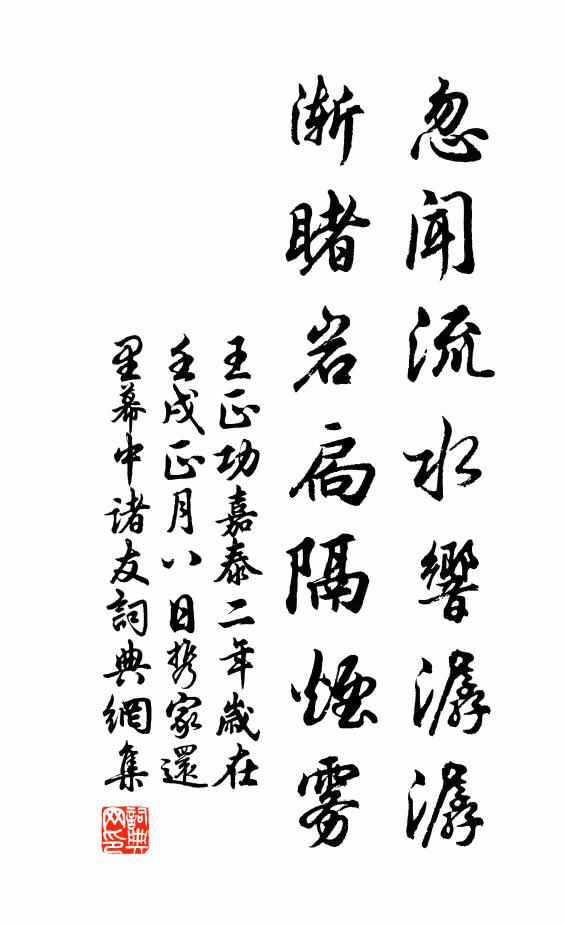 忽闻流水響潺潺
渐睹岩扃隔煙雾
王正功嘉泰二年歲在
壬戌正月八日携家還
里幕中诸友詞典網集
詞典网印